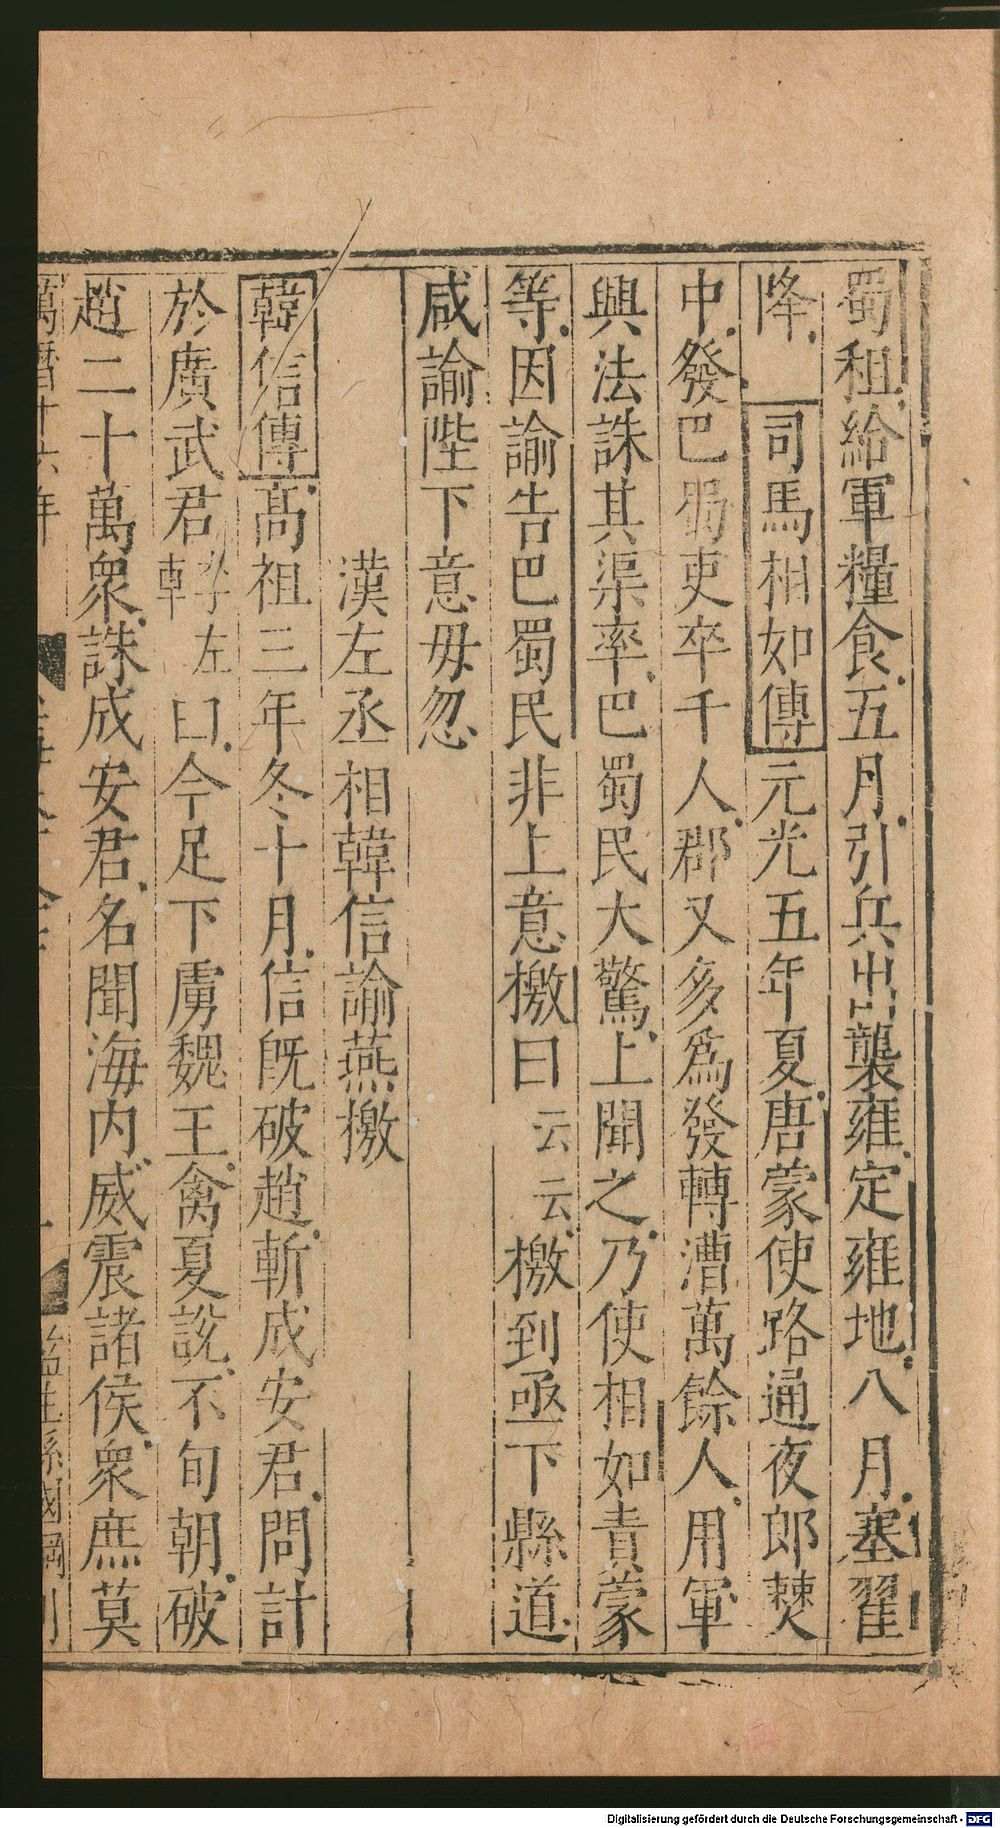 蜀租給軍糧食五月引兵出襲雍定雍地八月塞翟
降　司馬相如傳元光五年夏唐蒙使路通夜郎僰
中發巴蜀吏卒千人郡又多爲發轉漕萬餘人用軍
興法誅其渠率巴蜀民大驚上聞之乃使相如責蒙
等因諭告巴蜀民非上意檄曰云云檄到亟下縣道
咸諭陛下意毋忽
漢左丞相韓信諭燕檄
韓信傳高祖三年冬十月信旣破趙斬成安君問計
於廣武君李左車曰今足下虜魏王禽夏說不旬朝破
趙二十萬衆誅成安君名聞海內威震諸侯衆庶莫
萬曆十六年
監生孫國綱刊
Digitalisierung gefördert durch die Deutsche Forschungsgemeinschaft - DFG